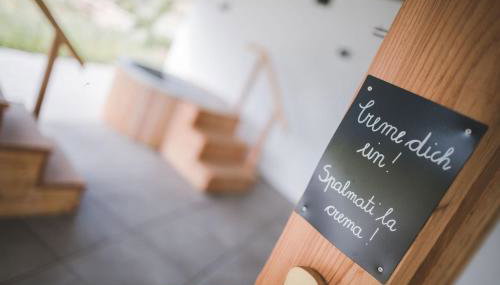 Creme dich
ein!
Spalmati la
crema!